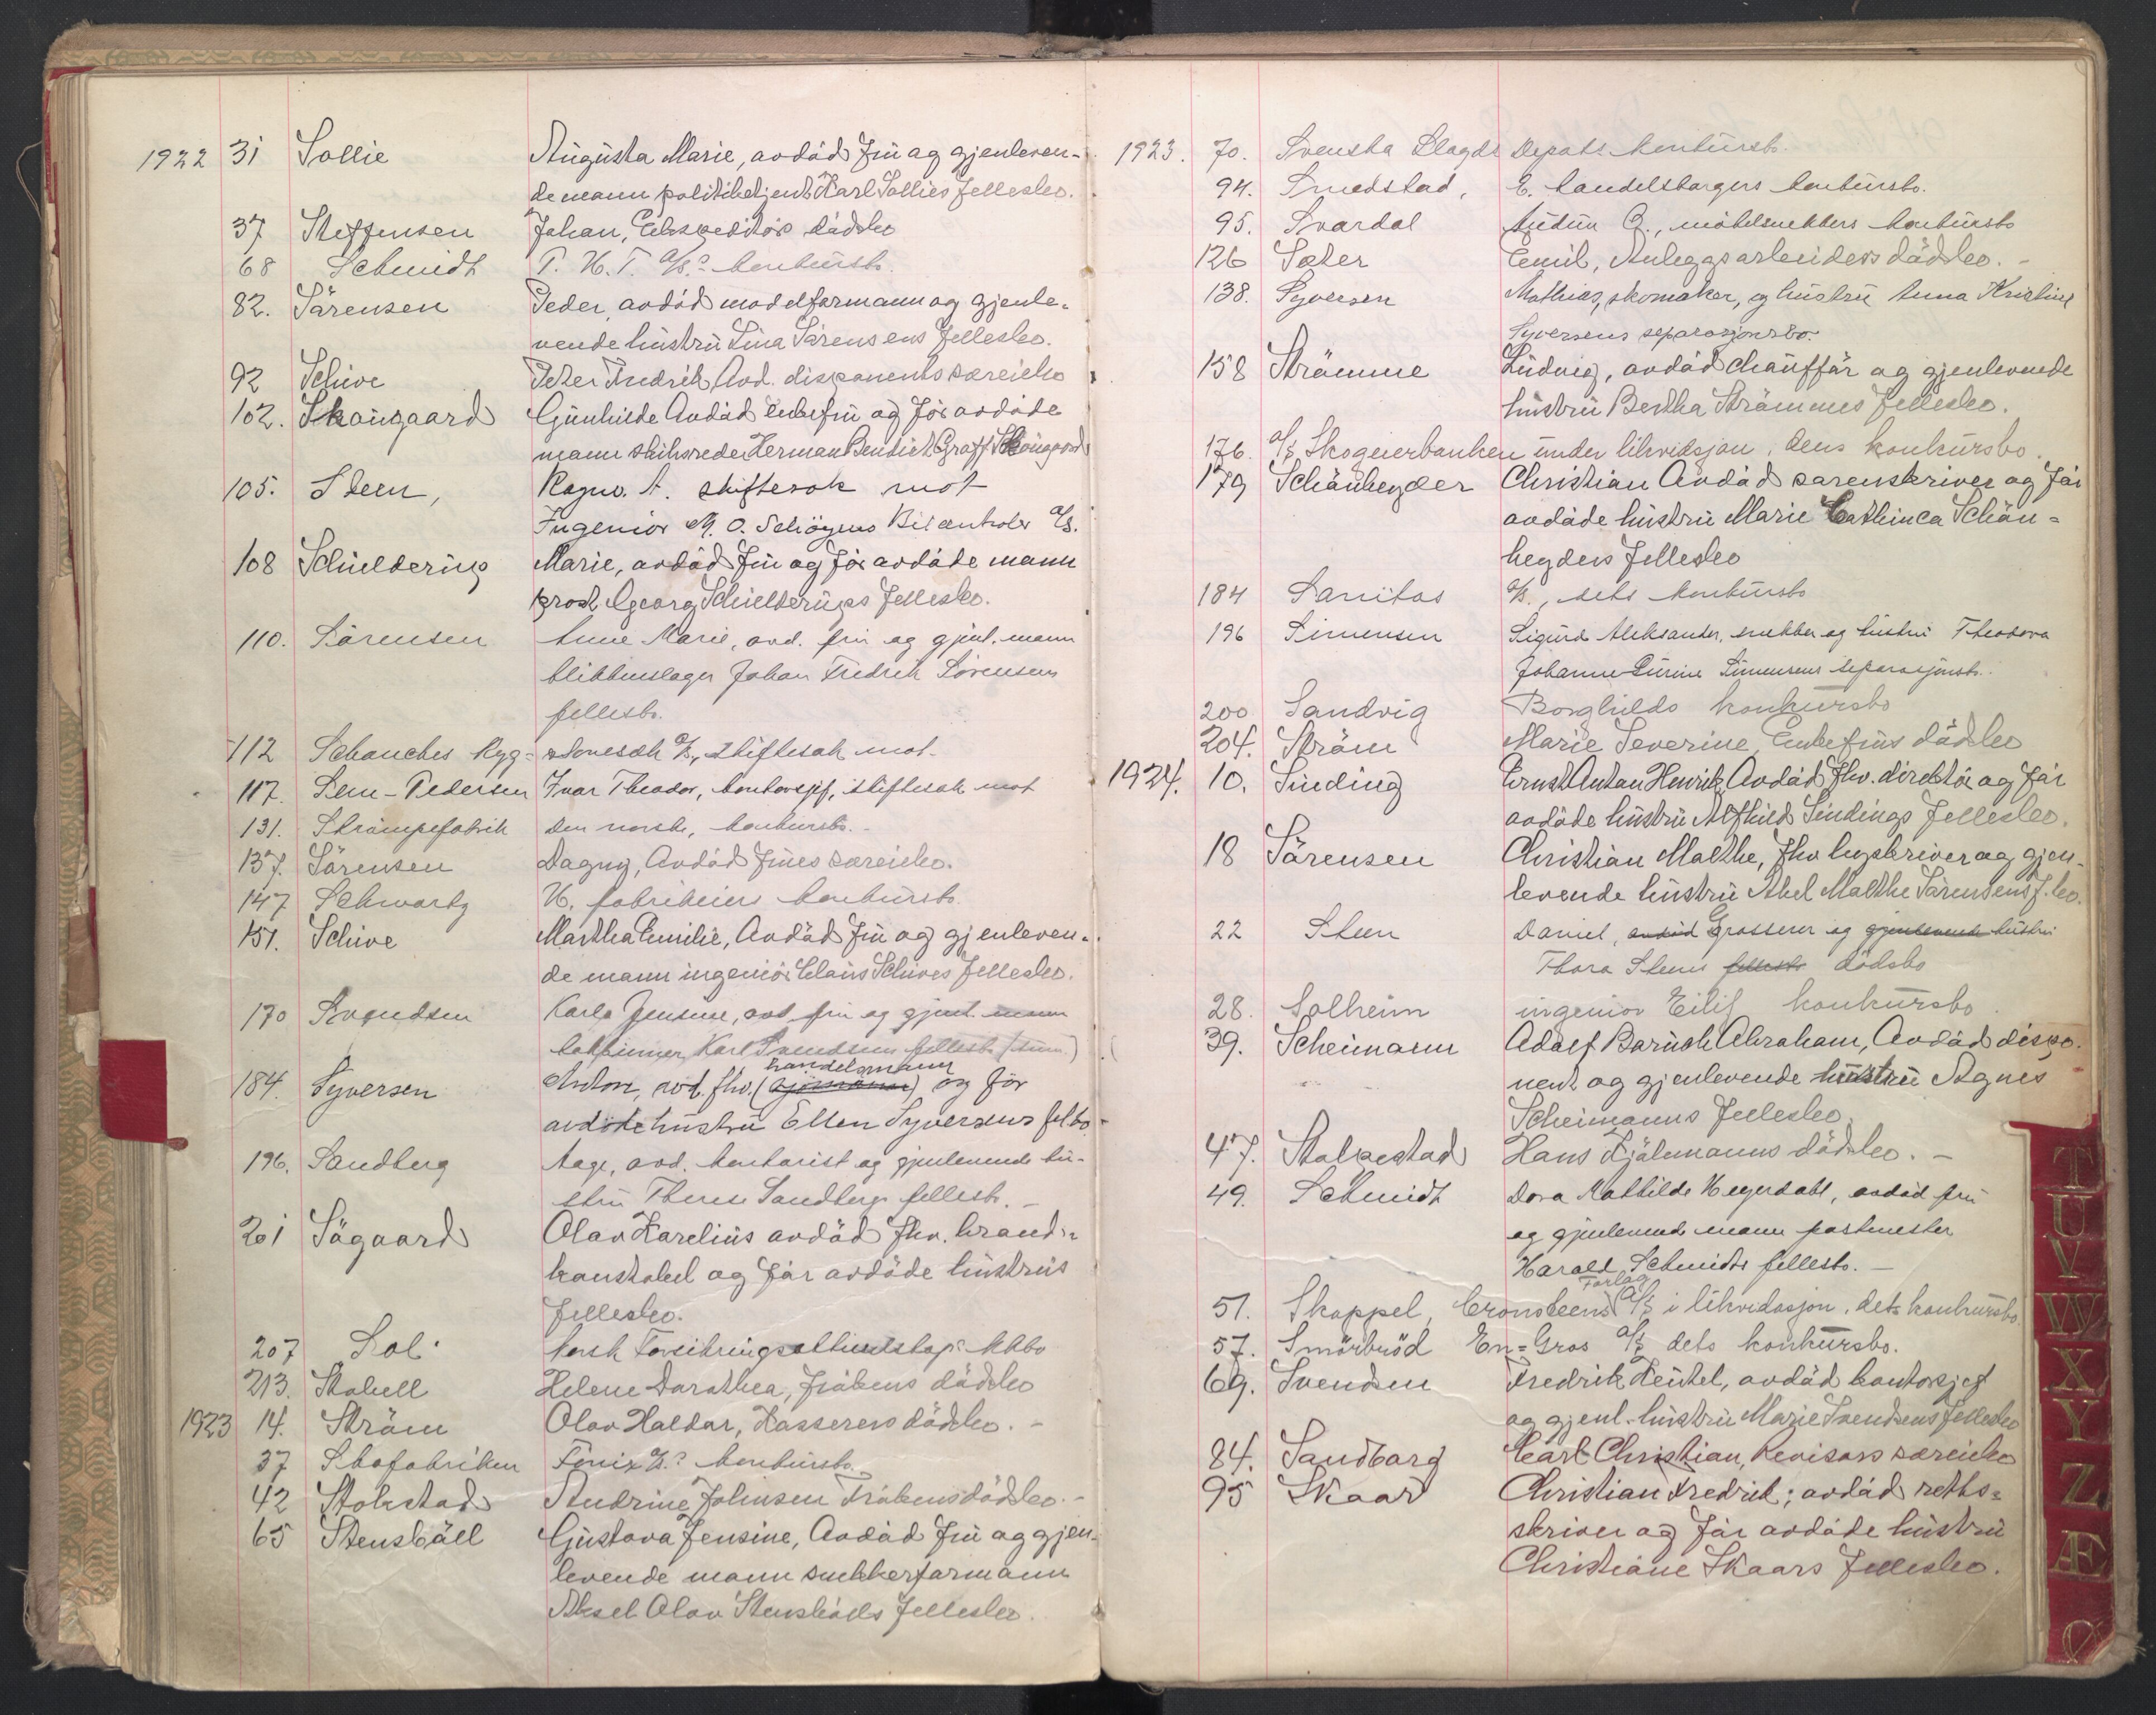 1922 31 Sollie Augusta Marie, avdöd fru og gjenleven-
de mann politibetjent Karl Sollies fellesbo.
37 Steffensen Johan, Ekspeditörs dödsbo
68 Schmidt T. H. T. A/S? konkursbo.
82. Sörensen Peder, avdöd modelformann og gjenle-
vende hustru Lina Sörensens fellesbo.
92 Schive Peter Fredrik Avd. disponents særeiebo
102. Skougaard Gunhilde Avdöd enkefru og för avdöde
mann skibsreder Herman Bendick Graff Skougaard
105. Steen, Ragnv. A. skiftesak mot
Ingeniör M. O. Schöyens Bilcentraler A/S.
108 Schielderup Marie, avdöd fru og för avdöde mann
prost Georg Schielderups fellesbo.
110. Sörensen Anne Marie, avd. fru og gjenl. mann
blikkenslager Johan Fredrik Sörensens
fellesbo.
112 Schanches Ryg-
& Tovesæk A/S, skiftesak mot.
117. Sem-Pedersen Ivar Theodor, kontorsjef, skiftesak mot
131. Strömpefabrik den norske, konkursbo.-
137. Sörensen Dagny, Avdöd frues særeiebo.
147 Schwartz H. fabrikeiers konkursbo.
151. Schive Martha Emilie, Avdöd fru og gjenleven-
de mann ingeniör Claus Schives fellesbo.
170 Svendsen Karla Jensine, avd fru og gjenl. mann
Karl Svendsens fellesbo
184. Syversen Anton, avd. fhv. (sjömann) handelsmann og för
avdöde hustru Ellen Syversens fel.bo.
196. Sandberg Aage, avd. kontorist og gjenlevende hu-
stru Therese Sandbergs fellesbo.-
201 Sögaard Olav Karelius avdöd fhv. brand-
konstabel og för avdöde hustrus
fellesbo.
207 Sol. norsk Forsikringsaktieselskap's kkbo
213. Stabell Helene Dorothea, frökens dödsbo
1923 14. Ström Olav Haldor, Kasserers dödsbo.-
37 Skofabriken Fönix A/S? konkursbo.
42 Stokstad Andrine Johnsen Frökens dödsbo.-
65 Stensböll Gustava Jensine, Avdöd fru og gjen-
levende mann snekkerformann
Aksel Olav Stensbölls fellesbo.
1923. 70. Svenska Slagds Depots konkursbo.
94. Smedstad, E. handelsborgers konkursbo.
95. Svardal Audun O., möbelsnekkers konkursbo
126 Sæter Emil, Anleggsarbeiders dödsbo.-
138. Syversen Mathias, skomaker, og hustru Anna Kristine
Syversens separasjonsbo.
158 Strömme Ludvig, avdöd chaufför og gjenlevende
hustru Bertha Strömmes fellesbo.
176. A/S Skogeierbanken under likvidasjon, dens konkursbo.
179 Schönheyder Christian Avdöd sorenskriver og för
avdöde hustru Marie Cathinca Schön-
heyders fellesbo
184 Sanitas A/S., dets konkursbo
196 Simensen Sigurd Aleksander, snekker og hustru Theodora
Johanne Simensens separasjonsbo.
200 Sandvig Borghilds konkursbo
204. Ström Marie Severine, Enkefrus dödsbo
1924. 10. Sinding Ernst Anton Henrik Avdöd fhv. direktör og för
avdöde hustru Alfhild Sindings fellesbo.
18 Sörensen Christian Malthe, fhv. byskriver og gjen-
levende hustru Abel Malthe Sörensens f.bo.
22 Steen Daniel, avdöd Grosserer og gjenlevende hustru
Thora Steens fellesbo dödsbo
28. Solheim ingeniör Eilif konkursbo
39. Scheimann Adolf Baruch Abraham, Avdöd dispo-
nent og gjenlevende hustru Agnes
Scheimanns fellesbo.
47. Stolpestad Hans Hjalmanns dödsbo.-
49. Schmidt Dora Mathilde Heyerdahl, avdöd fru
og gjenlevende mann postmester
Harald Schmidts fellesbo.-
51. Skappel, Cronsteens Forlag A/S i likvidasjon, dets konkursbo.
57. Smörbröd En-Gros A/S dets konkursbo.
69. Svendsen Fredrik Zeutel, avdöd kontorsjef
og gjenl. hustru Marie Svendsens fellesbo
84. Sandborg Carl Christian, Revisors særeiebo
95 Skaar Christian Fredrik; avdöd retts-
skriver og för avdöde hustru
Christiane Skaars fellesbo.
T
U
V
W
X
Y
Z
Æ
Ø